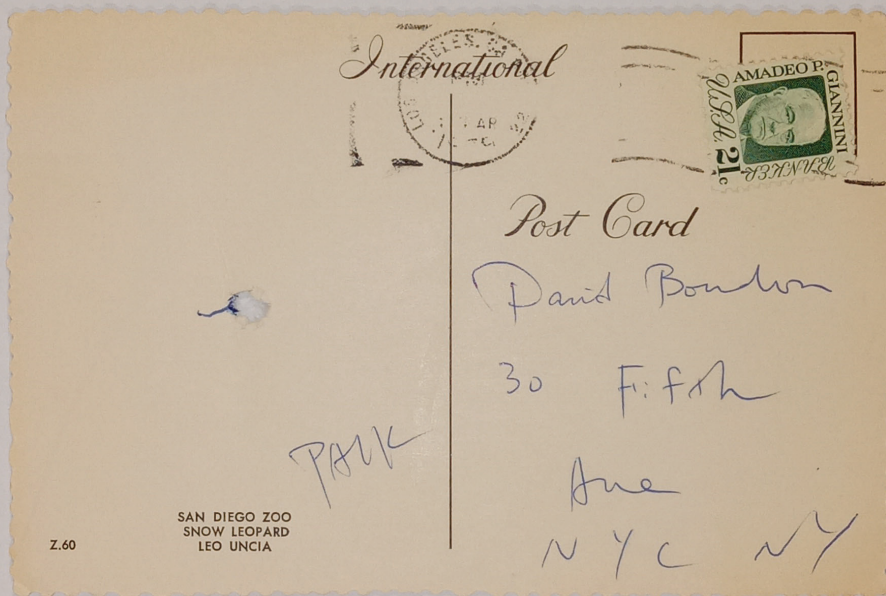 International
LOS ANGELES, CA
PM
AP
AMADEO P. GIANNINI
U.S.A.
21c
BANKER
Post Card
David Bourdon
30 Fifth
Ave
NYC NY
PAIK
SAN DIEGO ZOO
SNOW LEOPARD
LEO UNCIA
Z.60